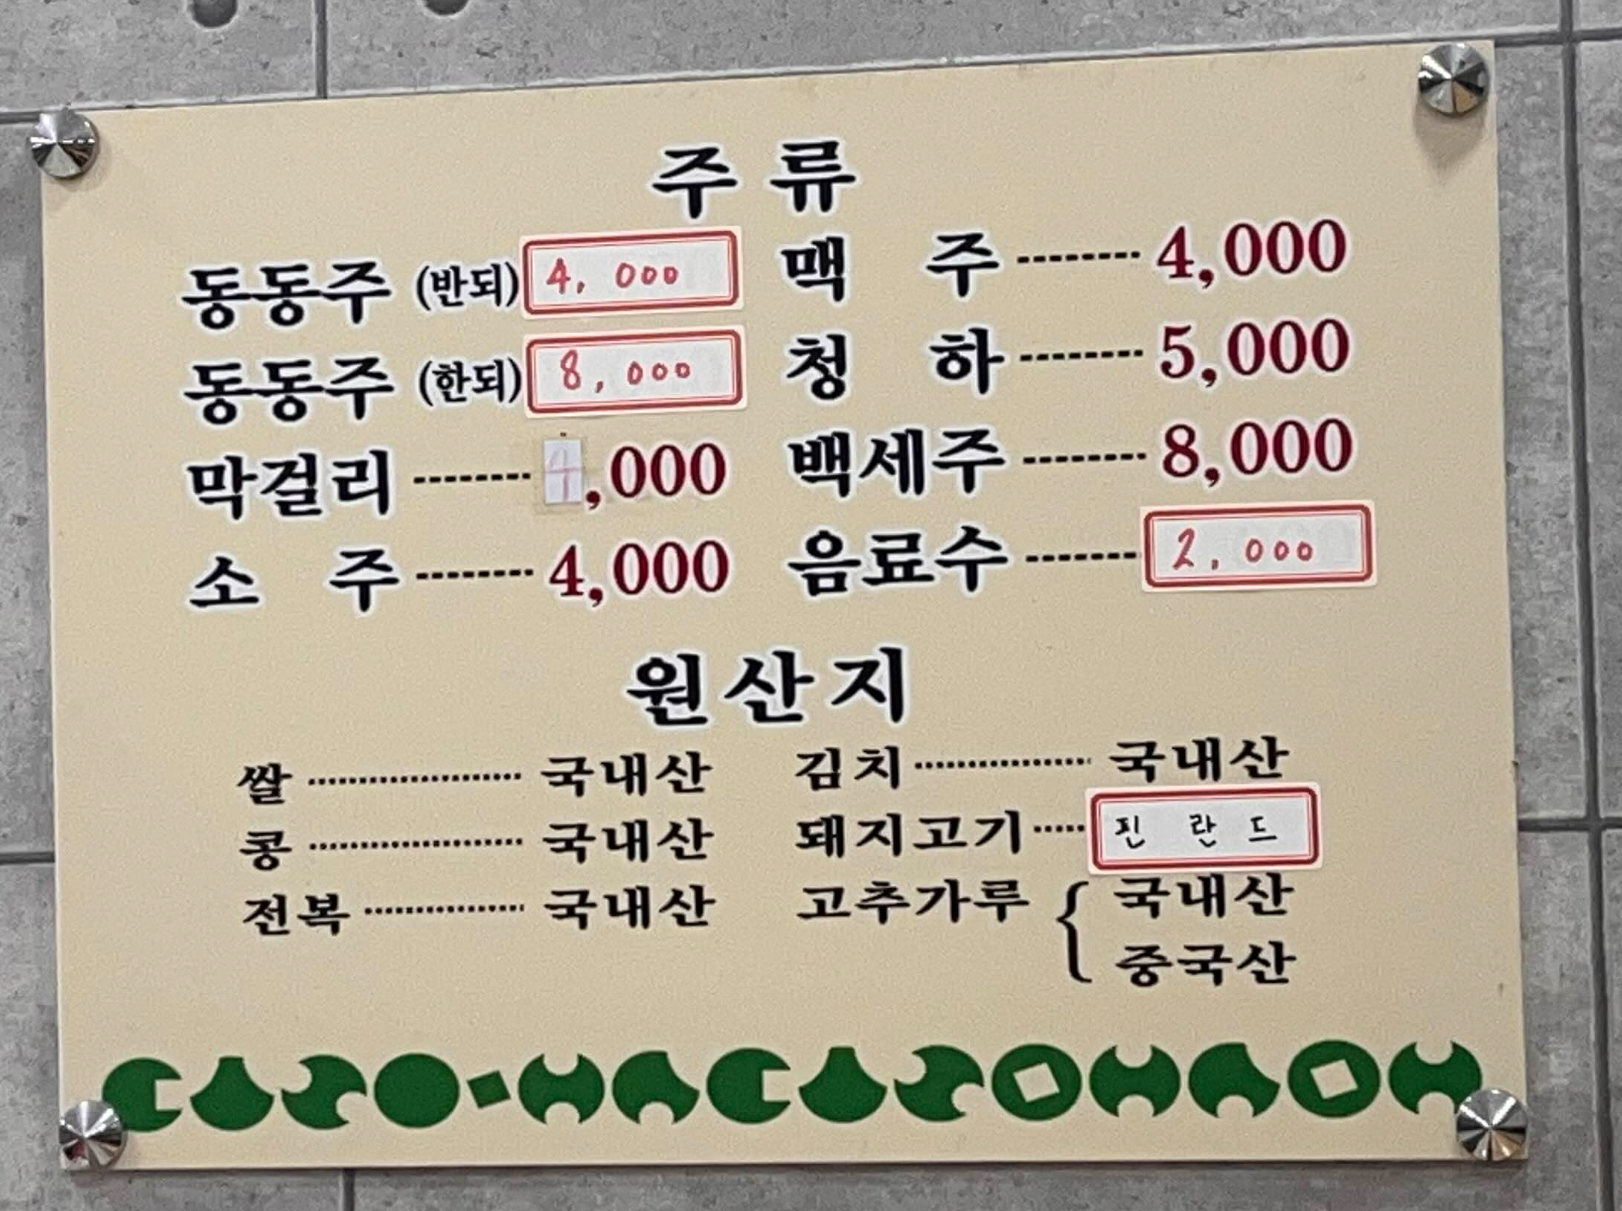 주류
동동주 (반되) 4,000
동동주 (한되) 8,000
막걸리 -------- 4,000
소 주 -------- 4,000
맥 주 -------- 4,000
청 하 -------- 5,000
백세주 -------- 8,000
음료수 ------- 2,000
원산지
쌀 ···················· 국내산
콩 ···················· 국내산
전복 ··············· 국내산
김치 ················ 국내산
돼지고기 ····· 핀란드
고추가루 { 국내산
중국산